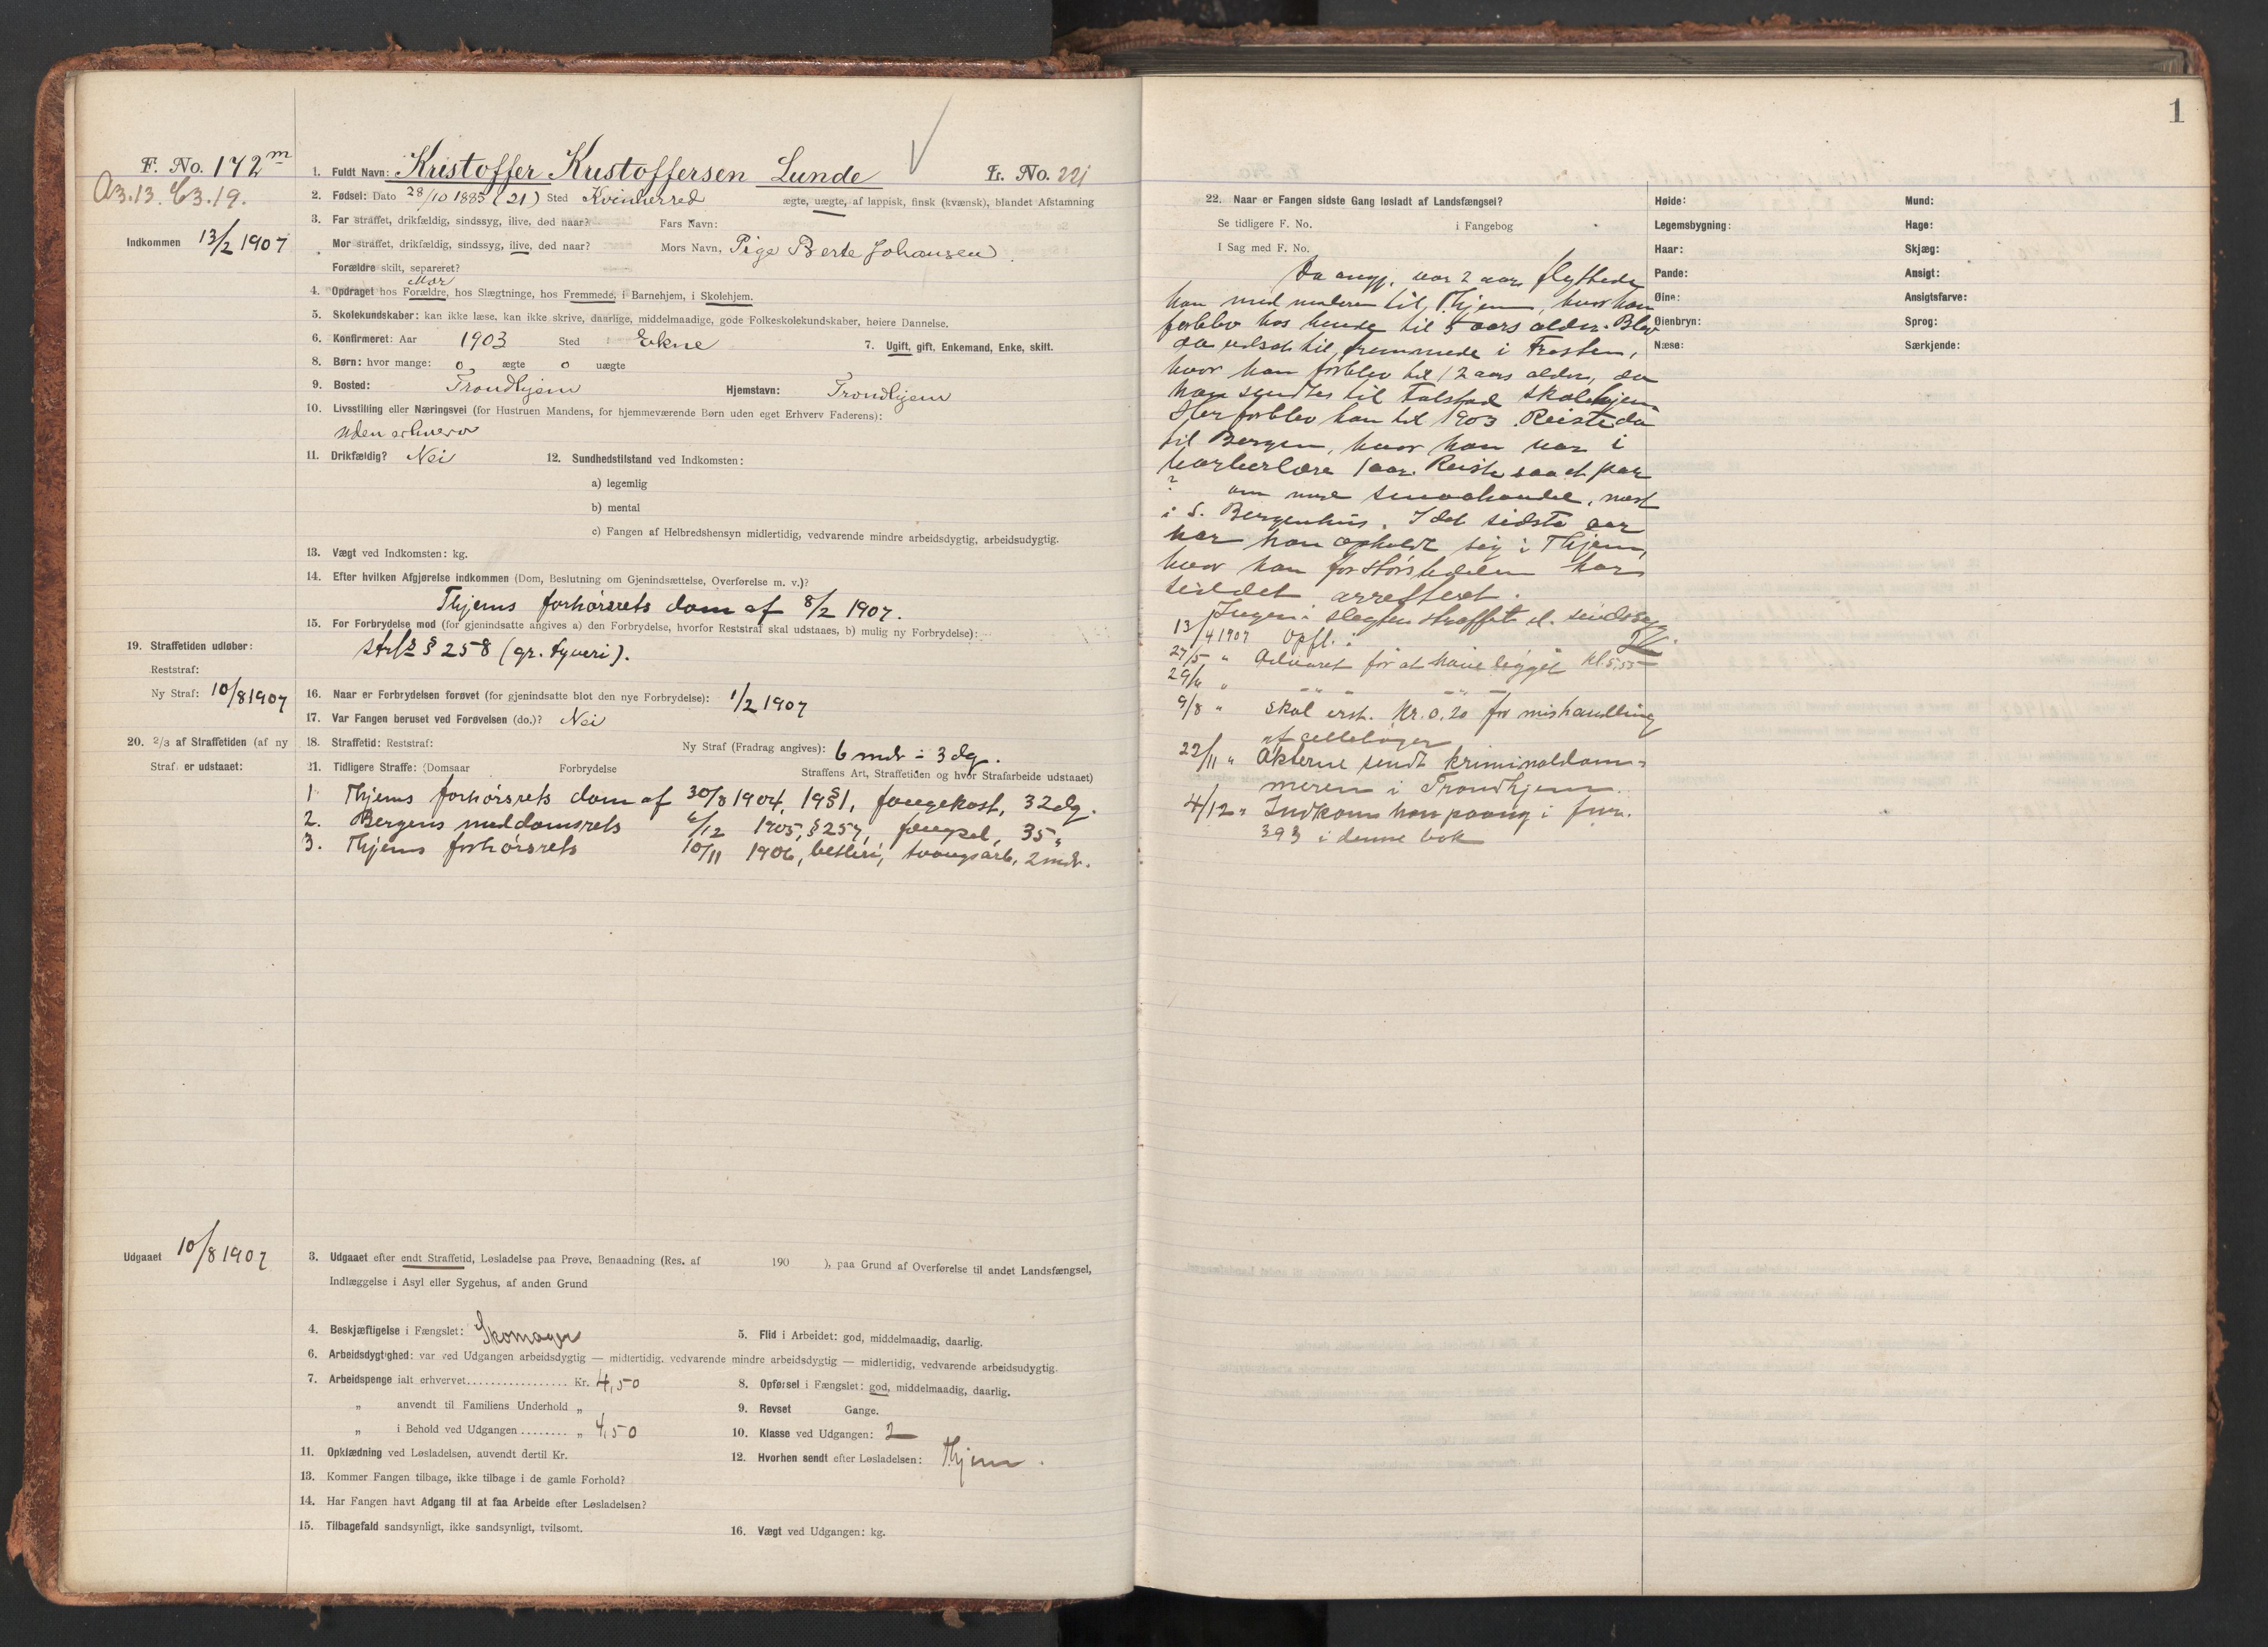 F. No. 172 m
A3.13. C3.19.
Indkommen 13/2 1907
1. Fuldt Navn: Kristoffer Kristoffersen Lunde
L. No. 221
2. Fødsel: Dato 28/10 1885 (21) Sted Kvinherred ægte, uægte, af lappisk, finsk (kvænsk), blandet Afstamning
3. Far straffet, drikfældig, sindssyg, ilive, død naar? Fars Navn:
Mor straffet, drikfældig, sindssyg, ilive, død naar? Mors Navn. Pige Berte Johansen.
Forældre skilt, separeret?
Mor
4. Opdraget hos Forældre, hos Slægtninge, hos Fremmede, i Barnehjem, i Skolehjem.
5. Skolekundskaber: kan ikke læse, kan ikke skrive, daarlige, middelmaadige, gode Folkeskolekundskaber, høiere Dannelse.
6. Konfirmeret: Aar 1903 Sted Ekne 7. Ugift, gift, Enkemand, Enke, skilt.
8. Børn: hvor mange: 0, ægte 0 uægte
9. Bosted: Trondhjem Hjemstavn: Trondhjem
10. Livsstilling eller Næringsvei (for Hustruen Mandens, for hjemmeværende Børn uden eget Erhverv Faderens):
Uden erhverv
11. Drikfældig? Nei 12. Sundhedstilstand ved Indkomsten:
a) legemlig
b) mental
c) Fangen af Helbredshensyn midlertidig, vedvarende mindre arbeidsdygtig, arbeidsudygtig.
13. Vægt ved Indkomsten: kg.
14. Efter hvilken Afgjørelse indkommen (Dom, Beslutning om Gjenindsættelse, Overførelse m. v.)?
Thjems forhørsrets dom af 8/2 1907.
15. For Forbrydelse mod (for gjenindsatte angives a) den Forbrydelse, hvorfor Reststraf skal udstaaes, b) mulig ny Forbrydelse):
strfl § 258 (gr. tyveri).
19. Straffetiden udløber:
Reststraf:
Ny Straf: 10/8 1907
16. Naar er Forbrydelsen forøvet (for gjenindsatte blot den nye Forbrydelse): 1/2 1907
17. Var Fangen beruset ved Forøvelsen (do.)? Nei
20. 2/3 af Straffetiden (af ny
Straf) er udstaaet:
18. Straffetid: Reststraf: Ny Straf (Fradrag angives): 6 mdr ÷ 3 dg.
21. Tidligere Straffe: (Domsaar Forbrydelse Straffens Art, Straffetiden og hvor Strafarbeide udstaaet)
1 Thjems forhørsrets dom af 30/8 1904, 19§1, fangekost, 32 dg.
2. Bergens meddomsrets 6/12 1905, § 257, fængsel, 35 "
3. Thjems forhørsrets 10/11 1906, betleri, tvangsarb, 2 mdr.
Udgaaet 10/8 1907
3. Udgaaet efter endt Straffetid, Løsladelse paa Prøve, Benaadning (Res. af 190 ), paa Grund af Overførelse til andet Landsfængsel,
Indlæggelse i Asyl eller Sygehus, af anden Grund
4. Beskjæftigelse i Fængslet: Skomager 5. Flid i Arbeidet: god, middelmaadig, daarlig.
6. Arbeidsdygtighed: var ved Udgangen arbeidsdygtig — midlertidig, vedvarende mindre arbeidsdygtig — midlertidig, vedvarende arbeidsudygtig.
7. Arbeidspenge ialt erhvervet................. Kr. 4,50 8. Opførsel i Fængslet: god, middelmaadig, daarlig.
„ anvendt til Familiens Underhold „ 9. Revset Gange.
„ i Behold ved Udgangen........ „ 4,50 10. Klasse ved Udgangen: 2
11. Opklædning ved Løsladelsen, anvendt dertil Kr. 12. Hvorhen sendt efter Løsladelsen: Thjem.
13. Kommer Fangen tilbage, ikke tilbage i de gamle Forhold?
14. Har Fangen havt Adgang til at faa Arbeide efter Løsladelsen?
15. Tilbagefald sandsynligt, ikke sandsynligt, tvilsomt. 16. Vægt ved Udgangen: kg.
1
22. Naar er Fangen sidste Gang løsladt af Landsfængsel?
Se tidligere F. No. i Fangebog
I Sag med F. No.
Da angj. var 2 aar flyttede
han med moderen til Thjem, hvor han
forblev hos hende til 5 aars alder. Blev
da udsat til fremmede i Frosten,
hvor han forblev til 12 aars alder, da
han sendtes til Falstad skolehjem
Her forblev han til 1903. Reiste da
til Bergen, hvor han var i
barberlære 1 aar. Reiste saa et par
? om med smaahandel, mest
i S. Bergenhus. I det sidste aar
har han opholdt sig i Thjem,
hvor han for størstedelen har
siddet arresteret.
Ingen i slægten straffet el. sindssyg.
13/4 1907 Opfl. i 2 kl.
27/5 " Advaret for at have ligget kl. 5,55
29/6 " " " "
9/8 " Skal erst. Kr. 0.20 for mishandling
af cellebøger
22/11 " Akterne sendt kriminaldom-
meren i Trondhjem.
4/12 " Indkom han paany i fnr.
393 i denne bok
Høide: Mund:
Legemsbygning: Hage:
Haar: Skjæg:
Pande: Ansigt:
Øine: Ansigtsfarve:
Øienbryn: Sprog:
Næse: Særkjende: